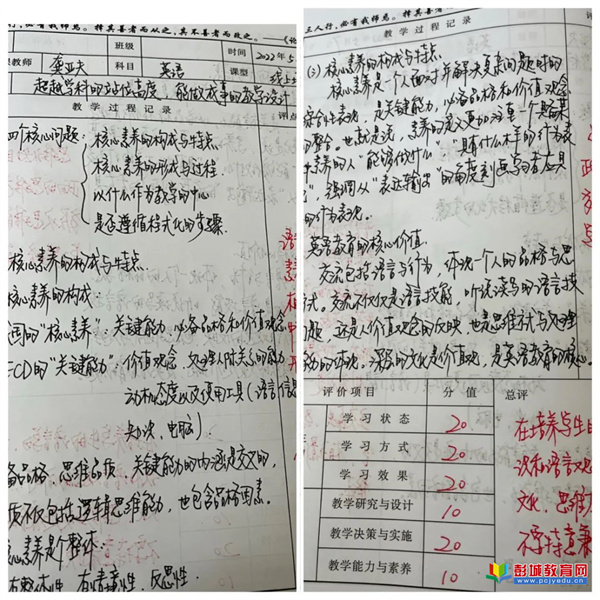 择其善者而从之，其不善者而改之。
班级
时间 2022年5
教师 龚亚夫 科目 英语 课型 线上
超越学科的站位高度 能做成事的教学设计
教学过程记录 评点
四个核心问题：
核心素养的构成与特点
核心素养的形成与过程
以什么作为教学的中心
是否遵循程式化的步骤
核心素养的构成与特点
核心素养的构成：
国的“核心素养”：关键能力，必备品格和价值观念
ECD的“关键能力”：价值观念，处理人际关系的能力
动机态度以及使用工具（语言信息
知识、电脑）
备品格、思维品质 关键能力的内涵是交叉的，
质不仅包括逻辑思维能力，也包含品格因素。
心素养是个整体：
有整体性，有情意性，反思性。
三人行，必有我师焉。择其善者
教学过程记录
评
(2) 核心素养的构成与特点
核心素养是一个人面对并解决真实问题时的
综合性表现，是关键能力，必备品格和价值观念
的整合。也就是说，素养的定义更加注重一个具备某
素养的人“能够做什么”“具有什么样的行为表
”，强调从“表达输出”的角度刻画学习者应具
的行为表现。
英语教育的核心价值
交流包括语言与行为，体现一个人的品格与思
式。交流不仅仅是语言技能，听说读写的语言技
问题，还是价值观念的反映，也是思维方式与处理
的体现。深层的文化是价值观，是英语教育的核心。
评价项目 分值 总评
学习状态 20
学习方式 20
学习效果 20
教学研究与设计 10
教学决策与实施 20
教学能力与素养 10
在培养学生
识和语言
文化，思维
不要特意
彭城教育网
www.pcjyedu.cn